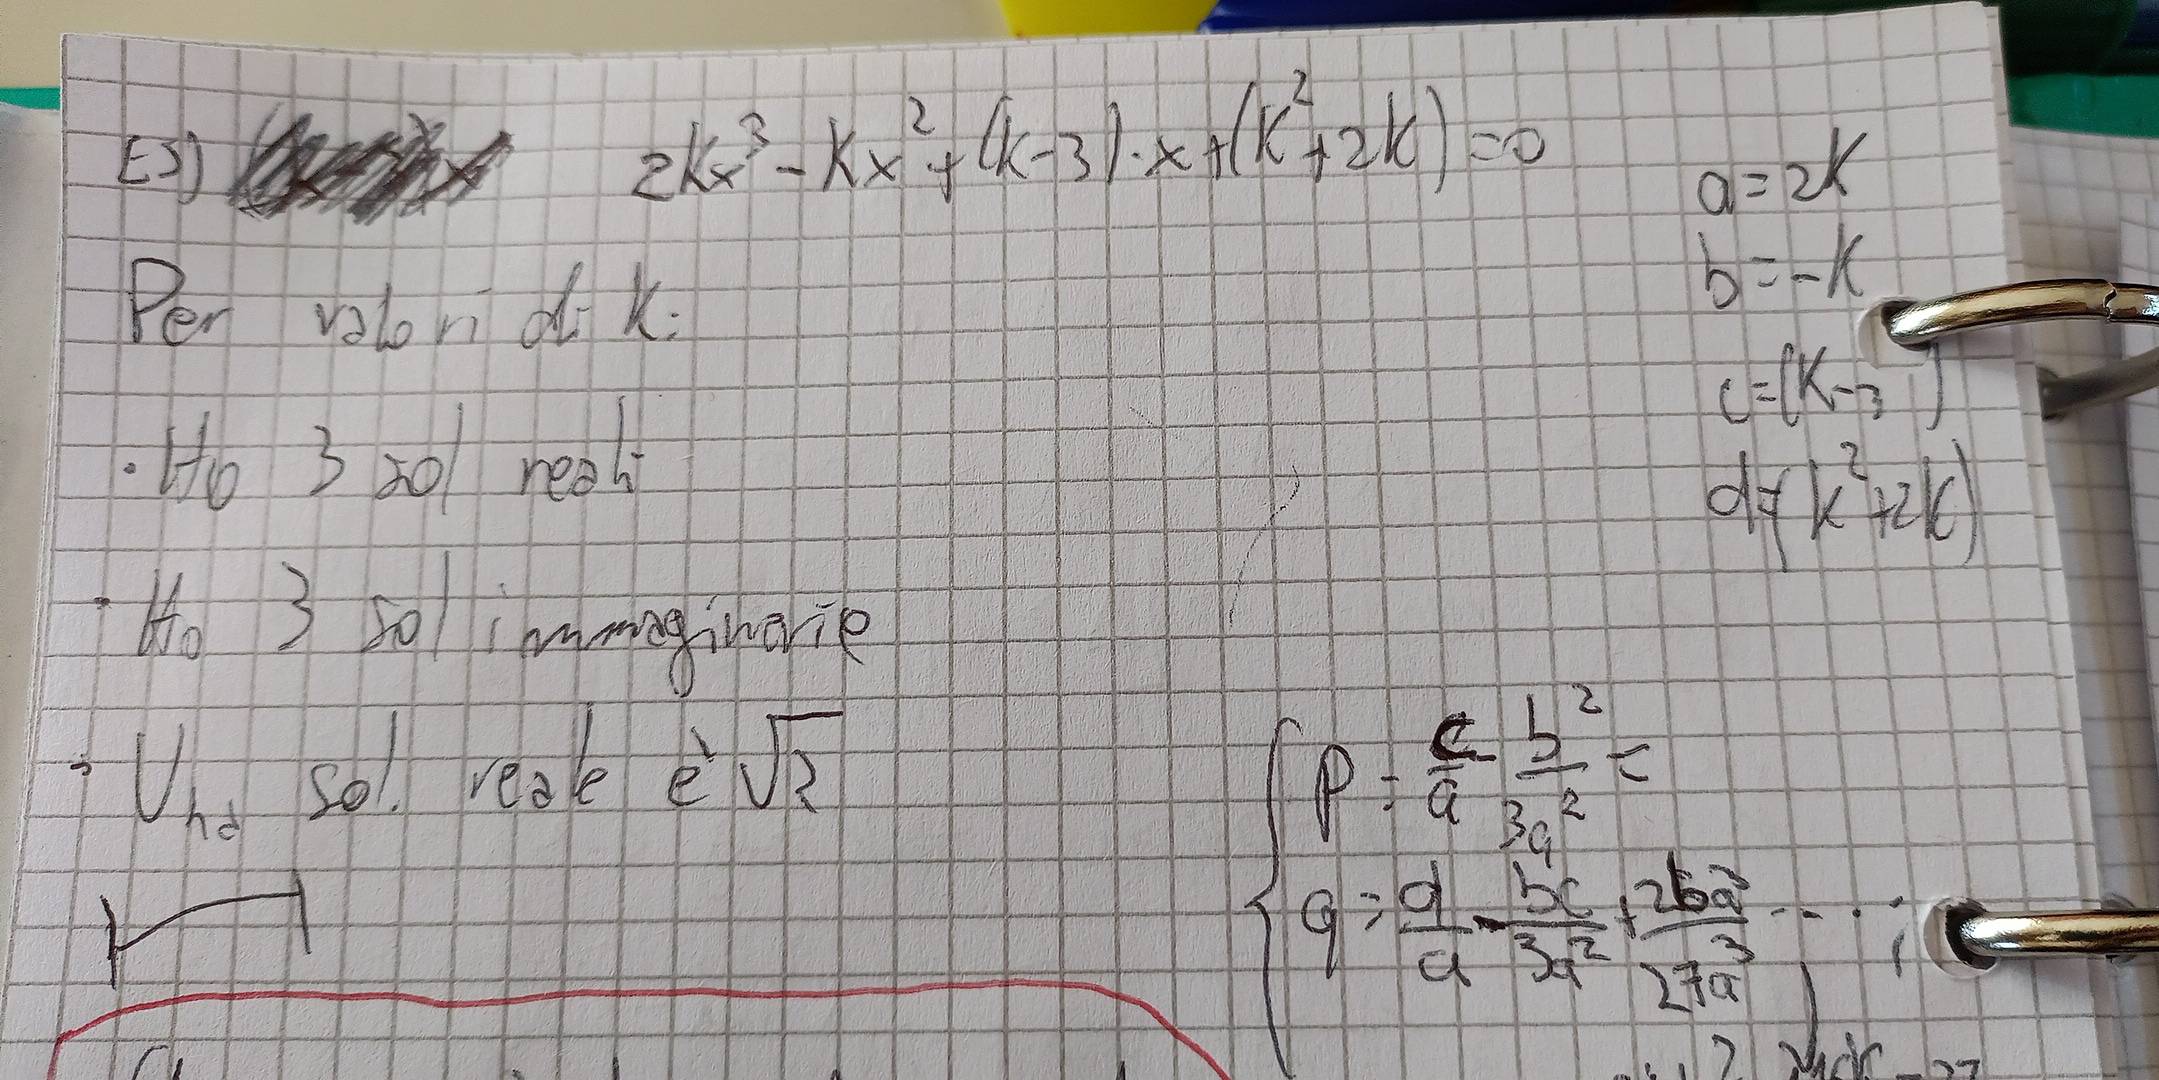 ES) 2kx³ - kx² + (k-3)·x + (k²+2k) = 0
a = 2k
b = -k
c = (k-3)
d = (k²+2k)
Per valori di k:
· Ho 3 sol reali
· Ho 3 sol immaginarie
· Una sol. reale è √2
p = c/a - b²/3a² =
q = d/a - bc/3a² +